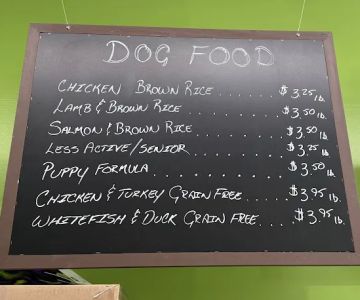 DOG FOOD
CHICKEN BROWN RICE....... $3.25 lb.
LAMB & BROWN RICE.......... $3.50 lb.
SALMON & BROWN RICE........ $3.50 lb.
LESS ACTIVE/SENIOR......... $3.25 lb.
PUPPY FORMULA............. $3.50 lb.
CHICKEN & TURKEY GRAIN FREE.... $3.95 lb.
WHITEFISH & DUCK GRAIN FREE.... $3.95 lb.